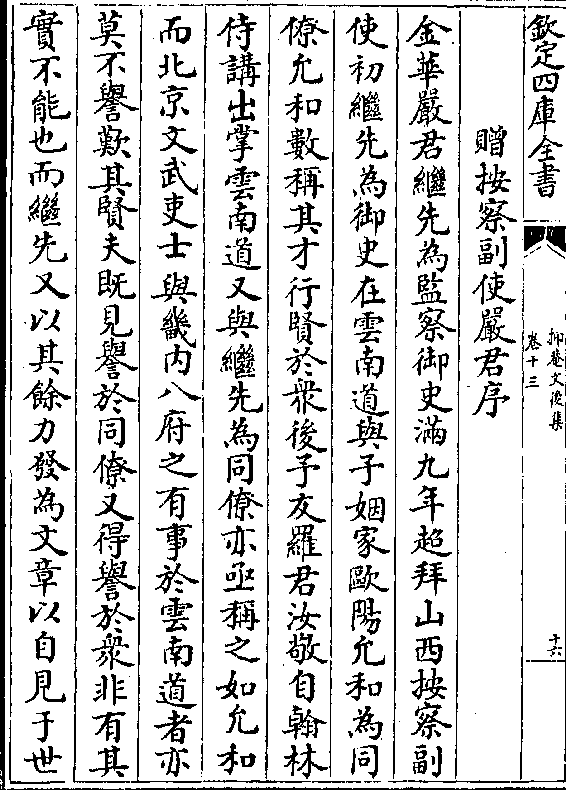 欽定四庫全書
抑菴文後集
卷十三
十六
贈按察副使嚴君序
金華嚴君繼先為監察御史滿九年超拜山西按察副
使初繼先為御史在雲南道與予姻家歐陽允和為同
僚允和數稱其才行賢於衆後予友羅君汝敬自翰林
侍講出掌雲南道又與繼先為同僚亦亟稱之如允和
而北京文武吏士與畿内八府之有事於雲南道者亦
莫不譽歎其賢夫既見譽於同僚又得譽於衆非有其
實不能也而繼先又以其餘力發為文章以自見于世